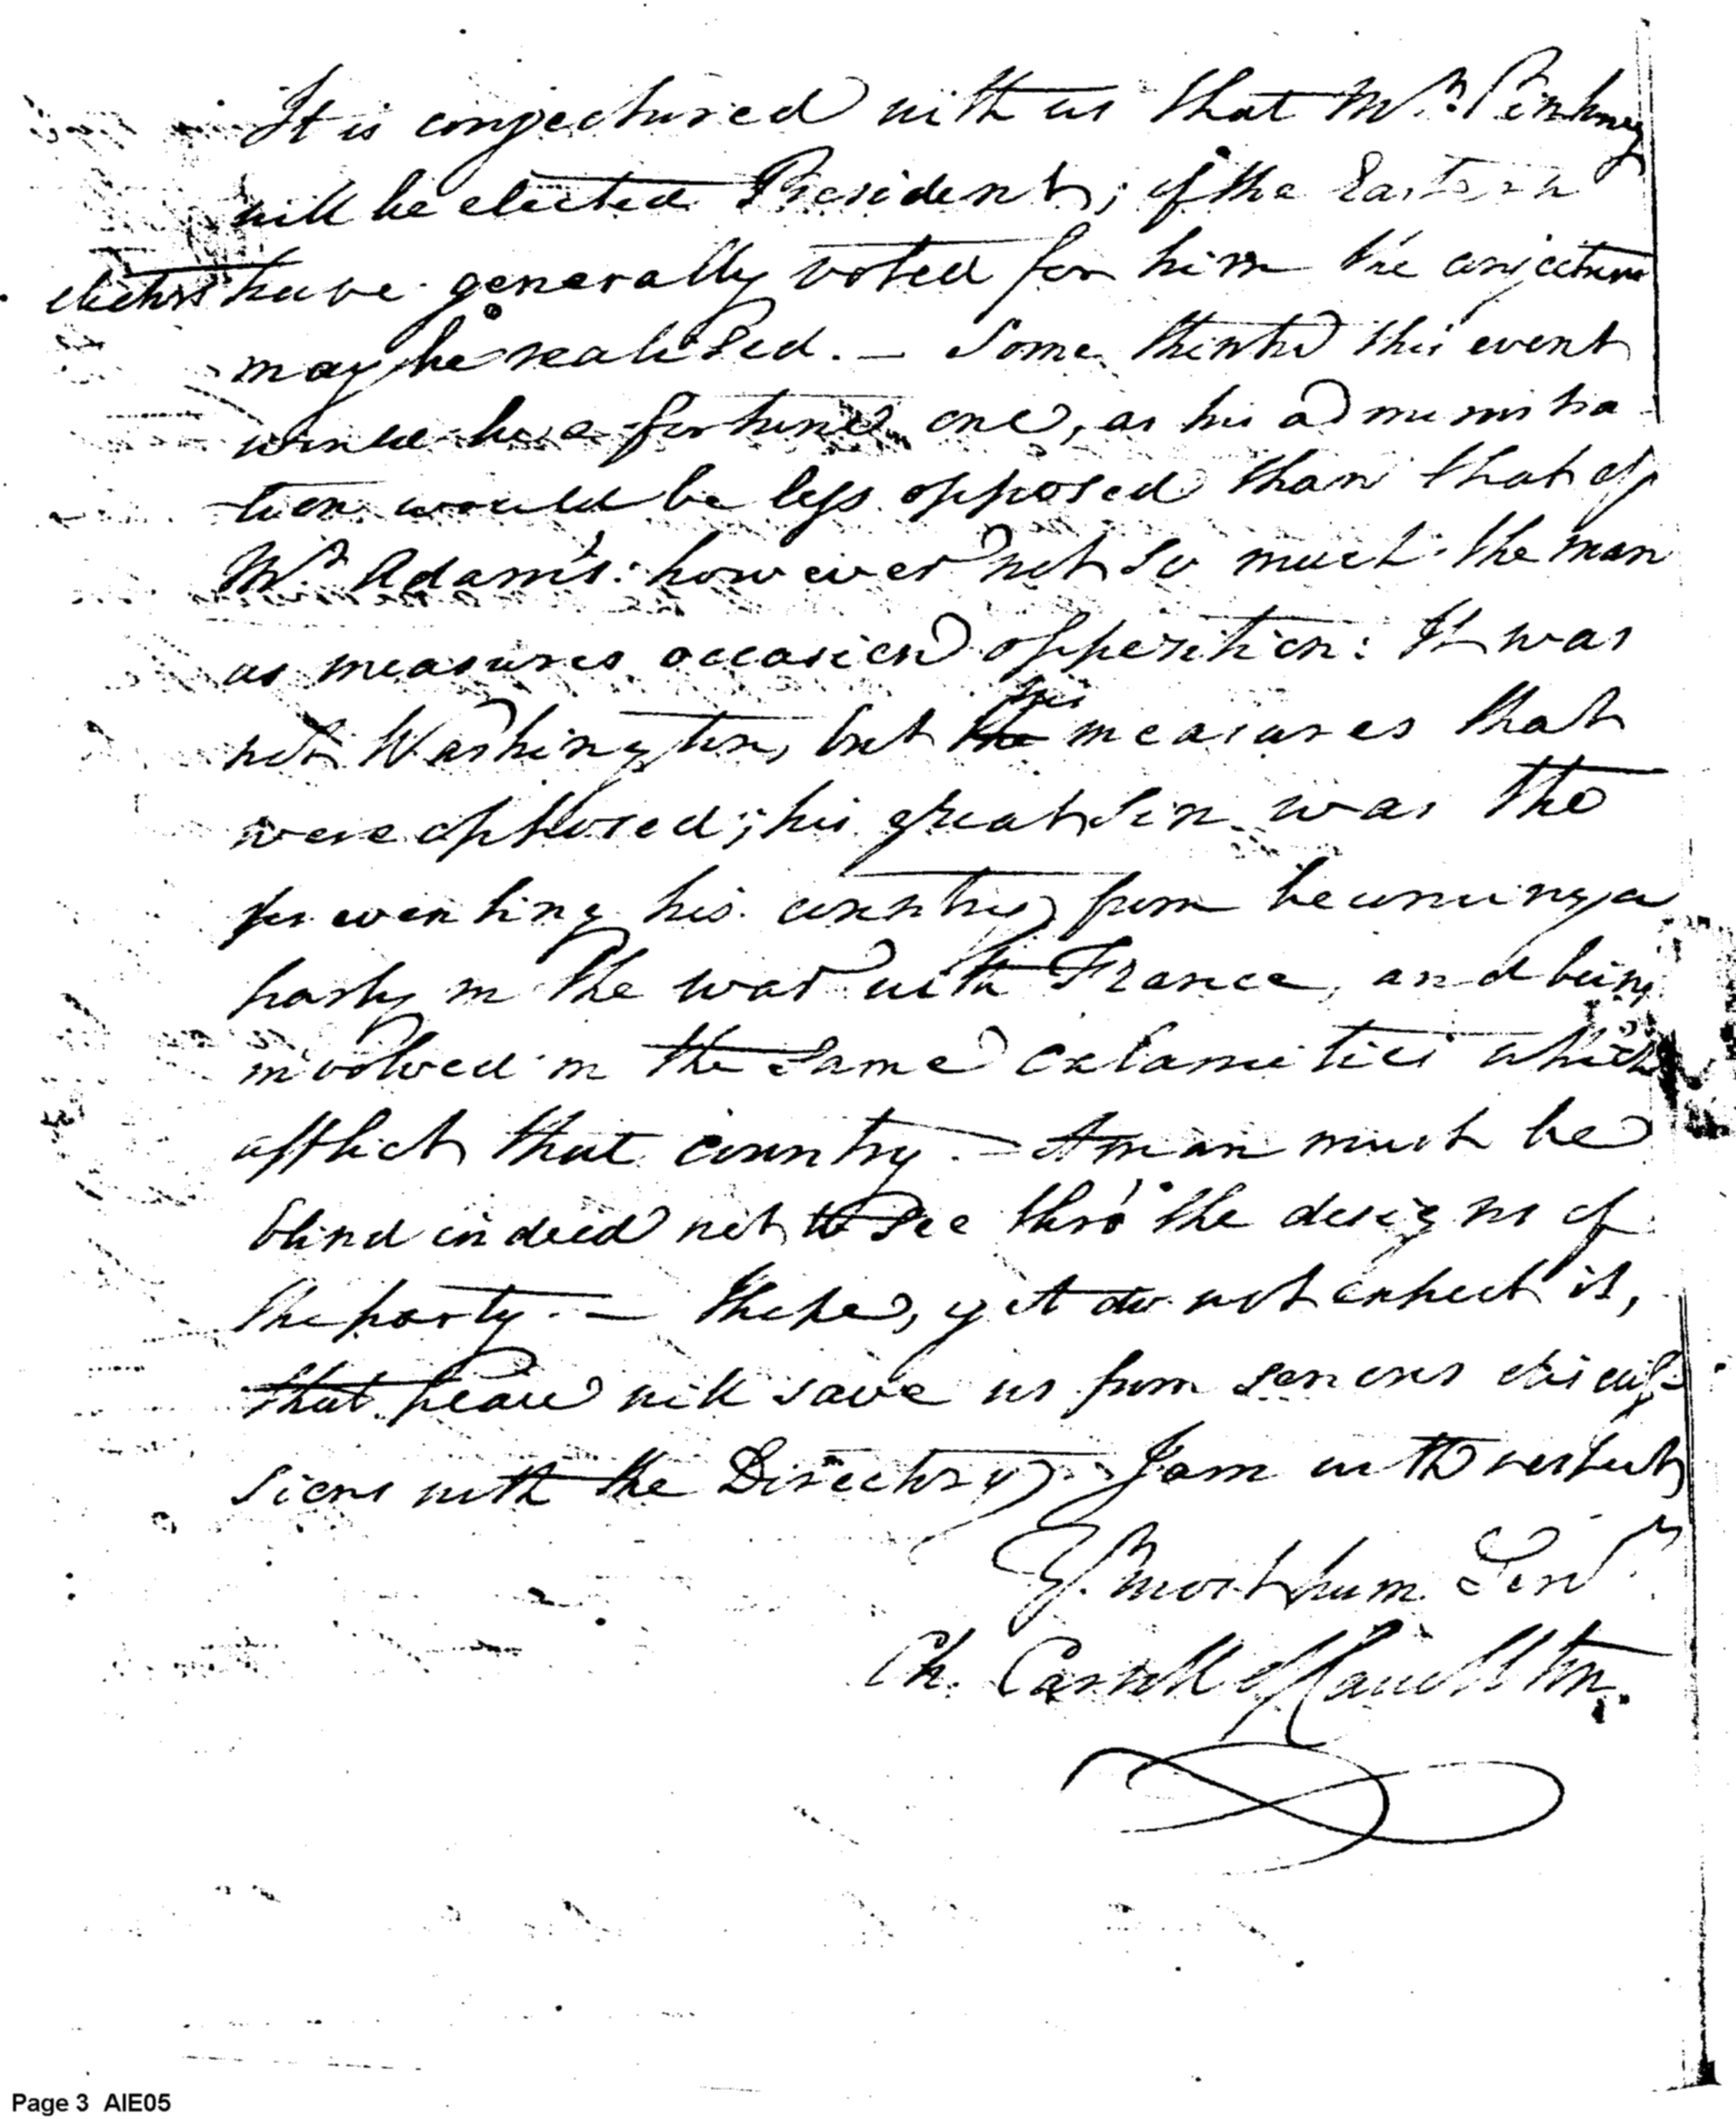 It is conjectured with us that Mr. Pinkney
will be elected President; if the Eastern
electors have generally voted for him the conjecture
may be realised. — Some think this event
would be a fortunate one, as his administra
-tion would be less opposed than that of
Mr. Adam's: however not so much the man
as measures occasion opposition: It was
not Washington, but the his measures that
were opposed; his great sin was the
preventing his country from becoming a
party in the war with France, and being
involved in the same calamities which
afflict that country. — A man must be
blind indeed not to see thro' the designs of
the party. — I hope, yet do not expect it,
that peace will save us from serious discus-
sions with the Directory. I am with respect
Yr. most hum. Servt.
Ch. Carroll of Carrollton.
Page 3 AIE05